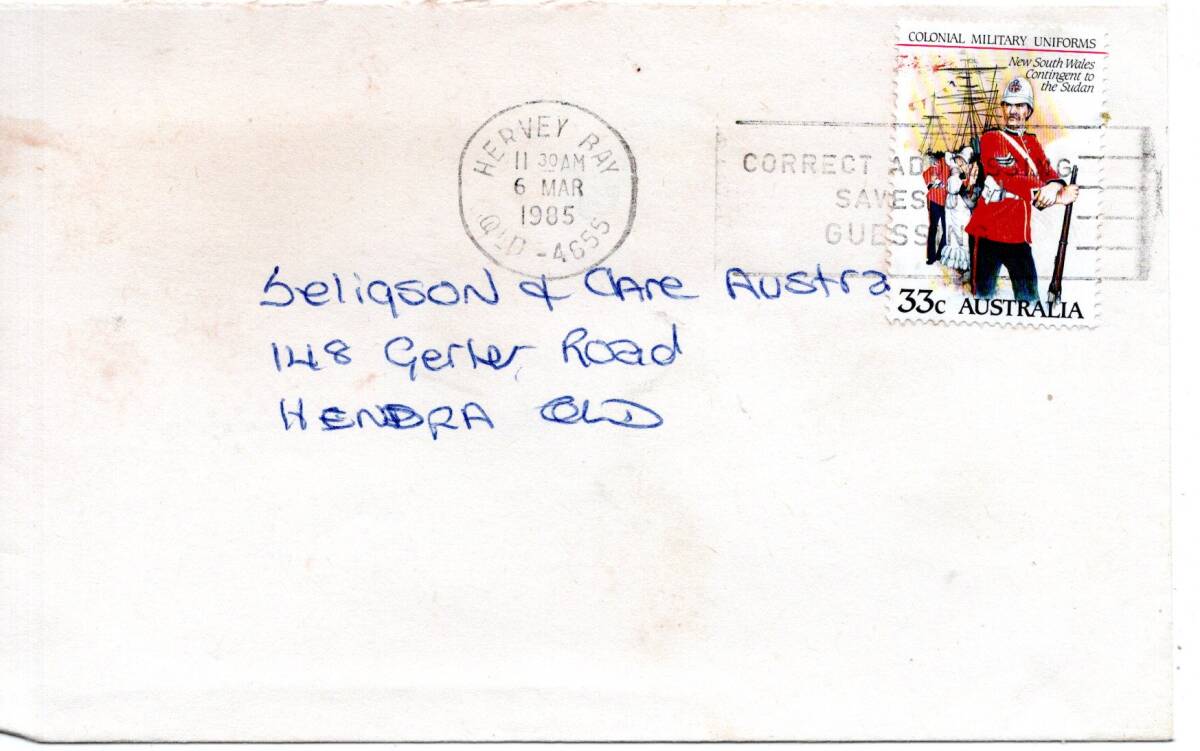 COLONIAL MILITARY UNIFORMS
New South Wales
Contingent to
the Sudan
33c AUSTRALIA
HERVEY BAY
11 30AM
6 MAR
1985
QLD - 4655
CORRECT ADDRESSING
SAVES
GUESSING
Seligson & Clare Austra
148 Gerler Road
HENDRA QLD